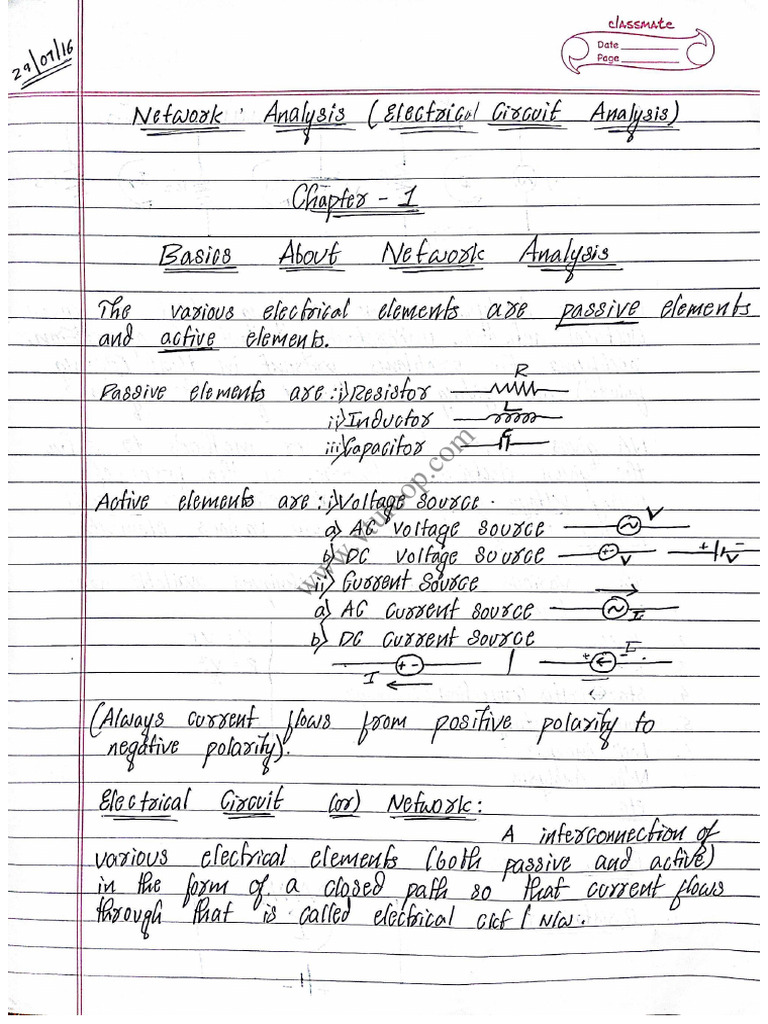 classmate
Date
Page
29/07/16
Network Analysis (Electrical Circuit Analysis)
Chapter - 1
Basics About Network Analysis
The various electrical elements are passive elements
and active elements.
Passive elements are : i) Resistor R
ii) Inductor L
iii) Capacitor C
Active elements are : i) Voltage source.
a) AC voltage source V
b) DC voltage source + - V + - V
ii) Current Source
a) AC current source I
b) DC current source
I + - | + - I
(Always current flows from positive polarity to
negative polarity).
Electrical Circuit (or) Network :
A interconnection of
various electrical elements (both passive and active)
in the form of a closed path so that current flows
through that is called electrical ckt / N/w.
1